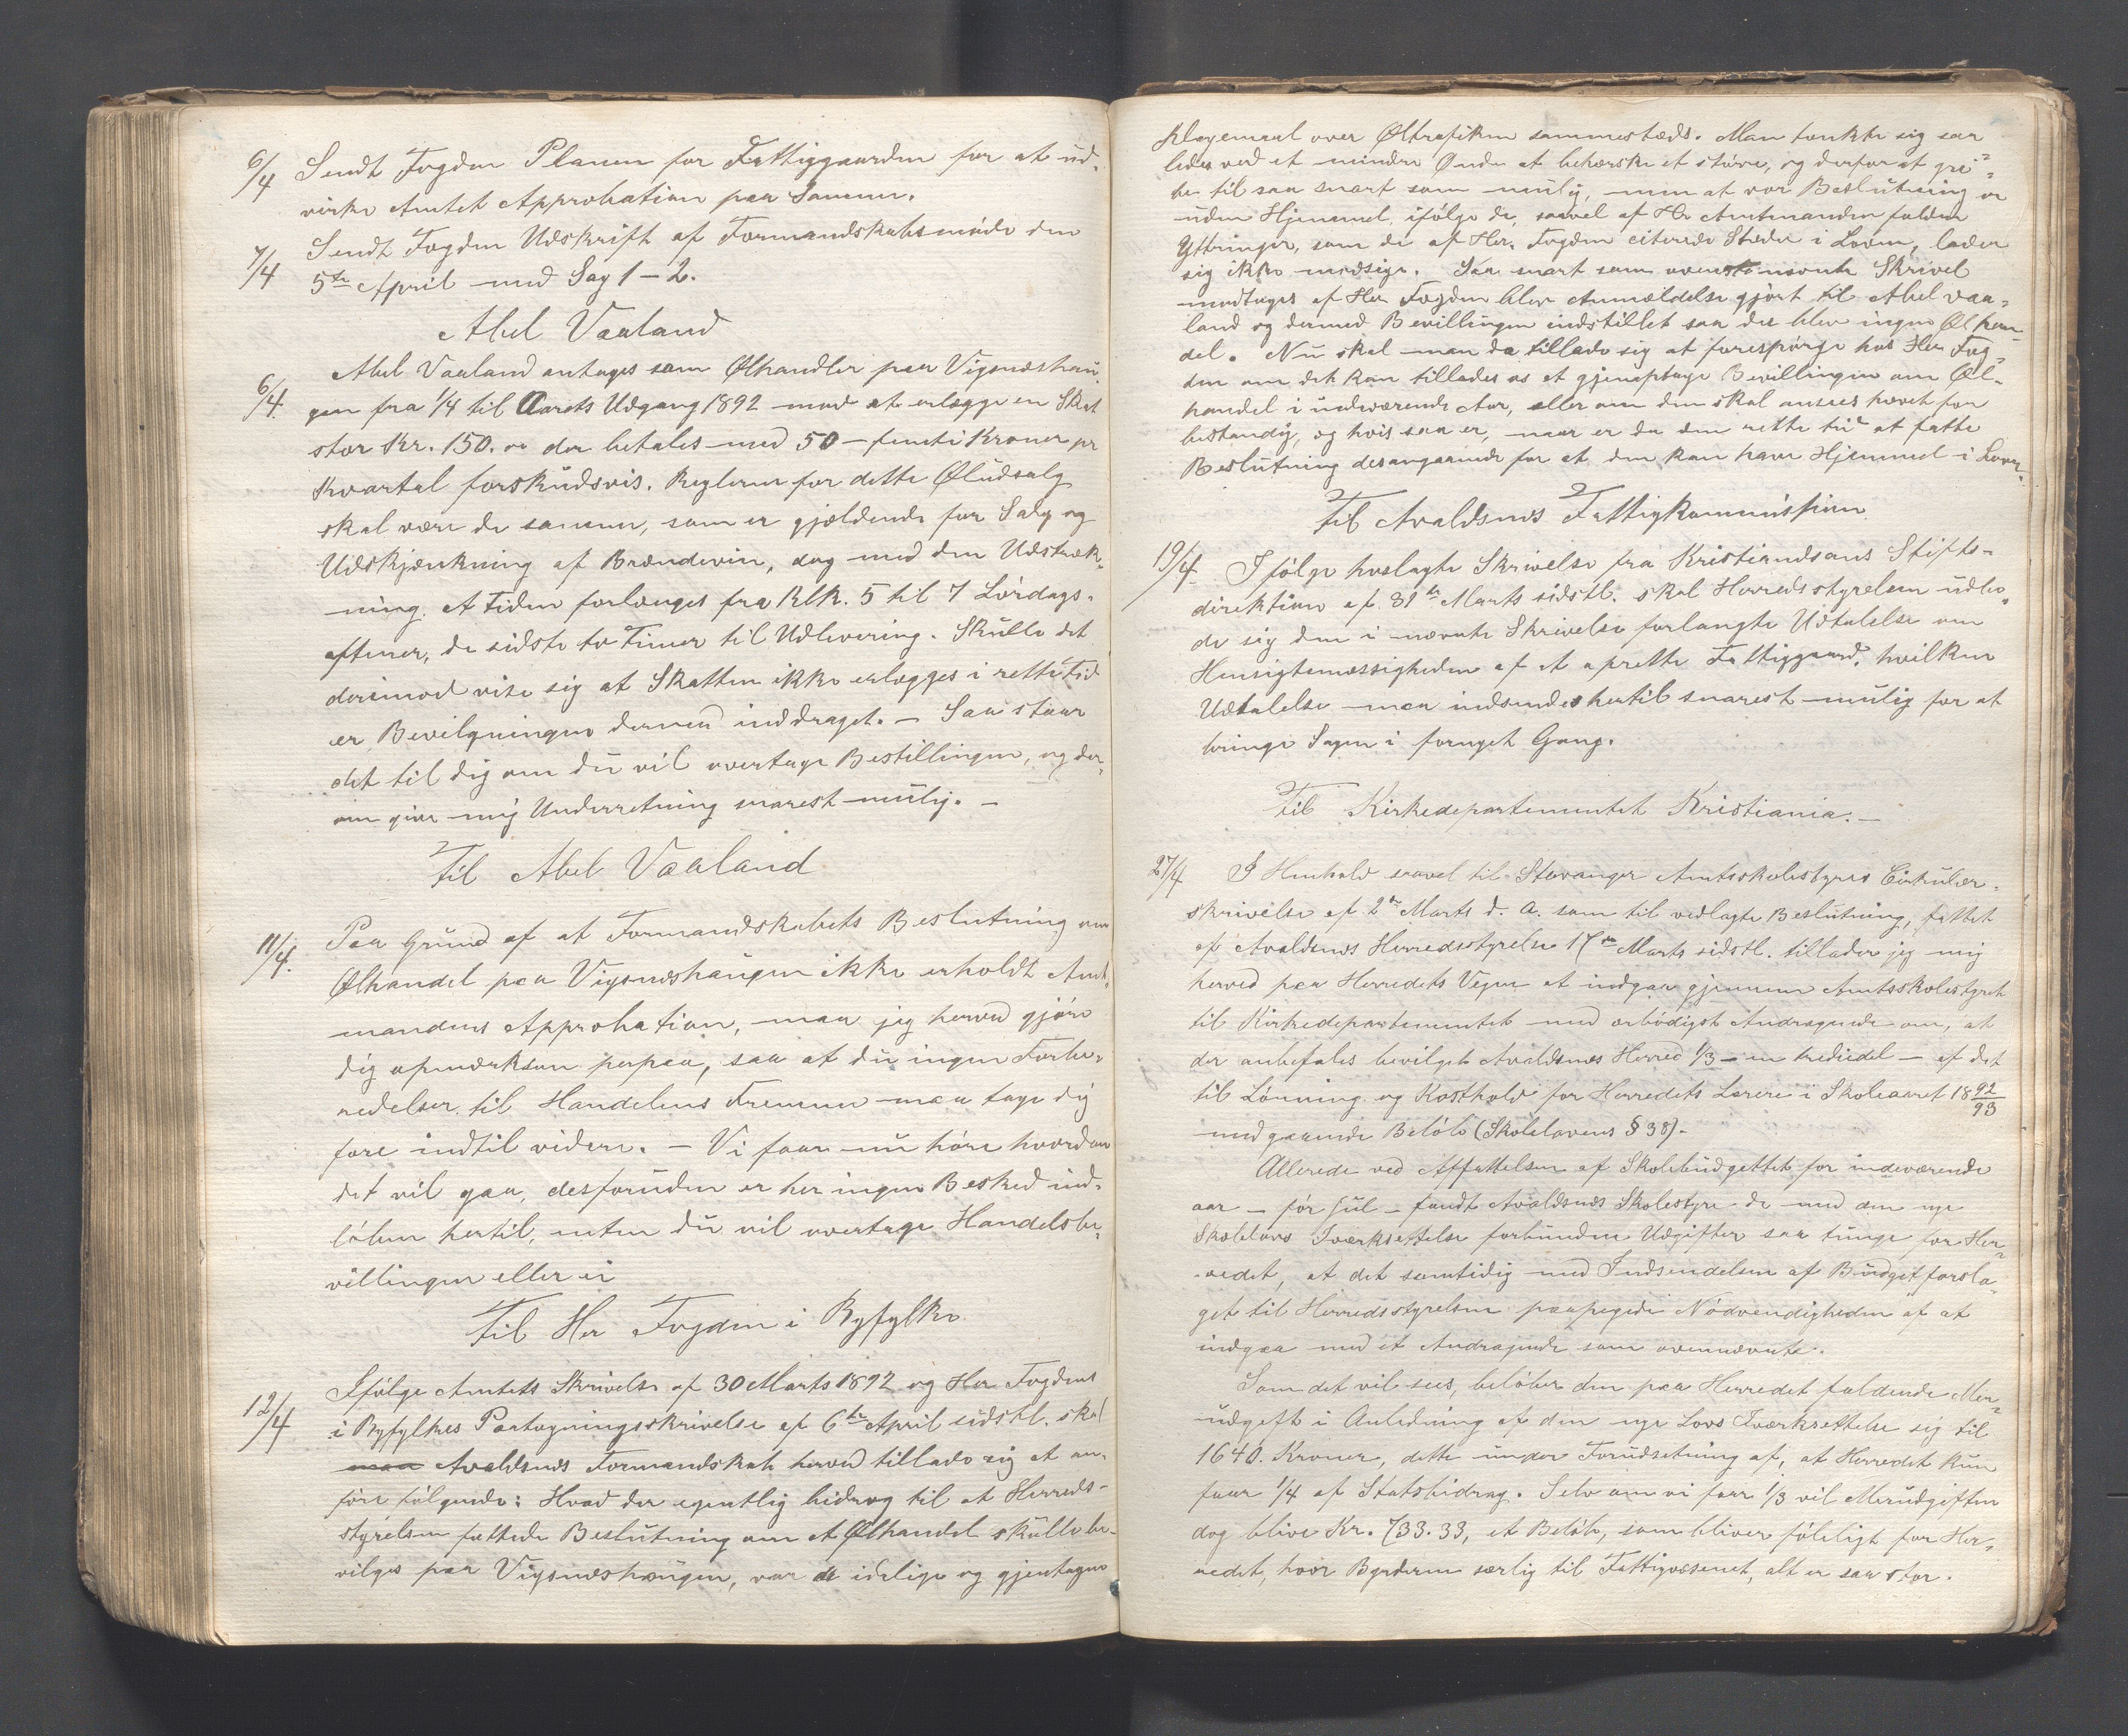 6/4 Sendt Fogden Planen for Fattiggaarden for at ud-
virke Amtets Approbation paa Samme.
7/4 Sendt Fogden Udskrift af Formandskabsmøde den
5te April med Sag 1-2.
Abel Vaaland
6/4. Abel Vaaland antages som Ølhandler paa Vigsnæshau-
gen fra 1/4 til Aarets Udgang 1892 mod at erlægge en Skat
stor Kr. 150. der betales med 50 - femti Kroner pr
Kvartal forskudsvis. Reglerne for dette Øludsalg
skal være de samme, som er gjældende for Salg og
Udskjænkning af Brændevin, dog med den Udstræk-
ning at Tiden forlænges fra Klk. 5 til 7 Lørdags-
aftener, de sidste to Timer til Udlevering. Skulle det
derimod vise sig at Skatten ikke erlægges i rette Tid
er Bevilgningen dermed inddraget. - Saa staar
det til dig om du vil overtage Bestillingen, og der-
om give mig Underretning snarest mulig. -
Til Abel Vaaland
11/4. Paa Grund af at Formandskabets Beslutning om
Ølhandel paa Vigsnæshaugen ikke erholdt Amt-
mandens Approbation, maa jeg herved gjøre
dig opmærksom herpaa, saa at du ingen Forbe-
redelser til Handelens Fremme maa tage dig
fore indtil videre. - Vi faar nu høre hvordan
det vil gaa, desforuden er her ingen Besked ind-
løben hertil, enten du vil overtage Handelsbe-
villingen eller ei
Til Hr Fogden i Ryfylke
12/4 Ifølge Amtets Skrivelse af 30 Marts 1892 og Hr Fogdens
i Ryfylkes Paategningsskrivelse af 6te April sidstl. skal
maa Avaldsnes Formandskab herved tillade sig at an-
føre følgende: Hvad der egentlig bidrog til at Herreds-
styrelsen fattede Beslutning om at Ølhandel skulle be-
vilges paa Vigsnæshaugen, var de idelige og gjentagne
Klagemaal over Øltrafiken sammesteds. Man tænkte sig saa
ledes ved et mindre Onde at beherske et større, og derfor at gri-
be til saa snart som mulig, men at vor Beslutning er
uden Hjemmel ifølge de, saavel af Hr Amtmanden faldne
Yttringer, som de af Hr. Fogden citerede Steder i Loven, lader
sig ikke modsige. Saa snart som ovennævnte Skrivel
modtages af Hr Fogden blev Anmeldelse gjort til Abel Vaa-
land og dermed Bevillingen indstillet saa der blev ingen Øl han-
del. Nu skal man da tillade sig at forespørge hos Hr Fog-
den om det kan tillades os at gjenoptage Bevillingen om Øl-
handel i indeværende Aar, eller om den skal ansees hævet for
bestandig, og hvis saa er, naar er da den rette tid at fatte
Beslutning desangaaende for at den kan have Hjemmel i Loven.
Til Avaldsnes Fattigkommission
19/4. Ifølge hoslagte Skrivelse fra Kristiansands Stifts-
direktion af 31te Marts sidstl. skal Herredsstyrelsen udbe-
de sig den i nævnte Skrivelse forlangte Udtalelse om
Hensigtsmæssigheden af at oprette Fattiggaard, hvilken
Udtalelse maa indsendes hertil snarest mulig for at
bringe Sagen i fornyet Gang.
Til Kirkedepartementet Kristiania. -
27/4 I Henhold saavel til Stavanger Amtsskolestyres Cirkulær-
skrivelse af 2den Marts d. A. som til vedlagte Beslutning, fattet
af Avaldsnes Herredsstyrelse 17de Marts sidstl. tillader jeg mig
herved paa Herredets Vegne at indgaa gjennem Amtsskolestyret
til Kirkedepartementet med ærbødigst Andragende om, at
der anbefales bevilget Avaldsnes Herred 1/3 - en trediedel - af det
til Lønning og Kosthold for Herredets Lærere i Skoleaaret 1892/93
medgaaende Beløb (Skolelovens § 38).
Allerede ved Affattelsen af Skolebudgettet for indeværende
aar - før Jul - fandt Avaldsnes Skolestyre de med den nye
Skolelovs Iværksættelse forbundne Udgifter saa tunge for Her-
redet, at det samtidig med Indsendelsen af Budgetforsla-
get til Herredsstyrelsen paapegede Nødvendigheden af at
indgaa med et Andragende som ovennævnte.
Som det vil sees, beløber den paa Herredet faldende Mer-
udgift i Anledning af den nye Lovs Iværksættelse sig til
1640. Kroner, dette under Forudsetning af, at Herredet kun
faar 1/4 af Statsbidrag. Selv om vi faar 1/3 vil Merudgiften
dog blive Kr. 733.33, et Beløb, som bliver føleligt for Her-
redet, hvor Byrderne særlig til Fattigvæsenet, alt er saa stor.